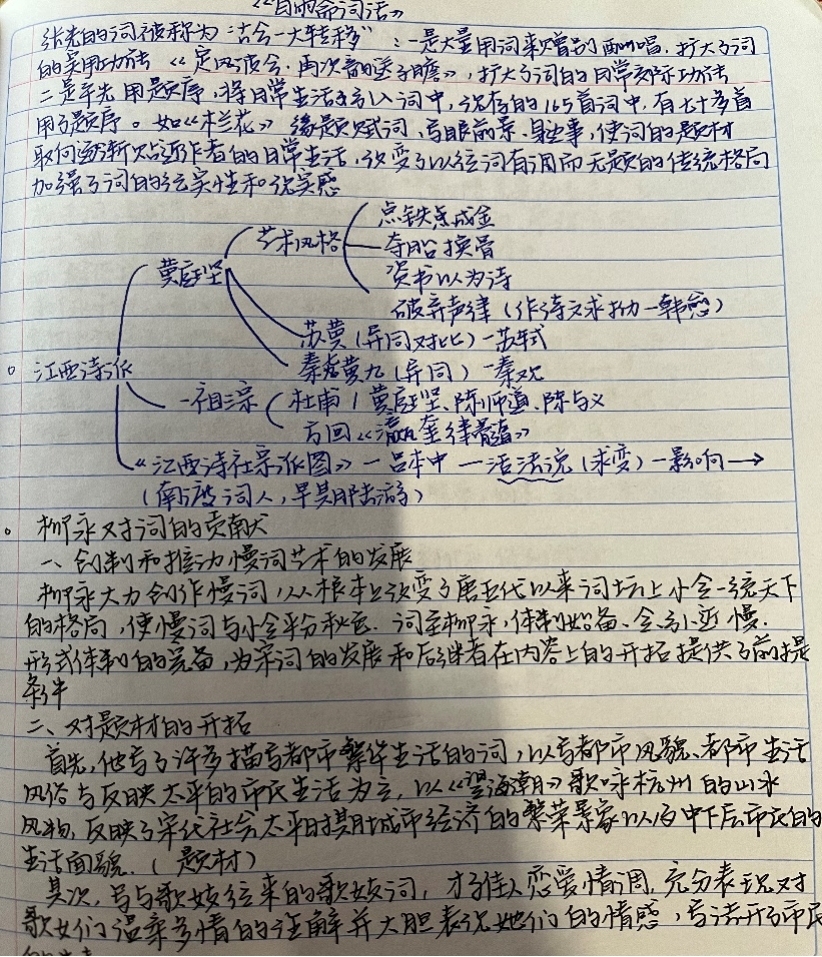 《白雨斋词话》
张先的词被称为"古今一大转移"：一是大量用词来赠别酬唱，扩大了词
的实用功能《定风波令·再次韵送子瞻》，扩大了词的日常交际功能
二是率先用题序，将日常生活引入词中，现存的165首词中，有七十多首
用了题序。如《木兰花》缘题赋词，写眼前景、身边事，使词的题材
取向逐渐贴近作者的日常生活，改变了以往词有调而无题的传统格局
加强了词的纪实性和现实感
点铁成金
艺术风格 夺胎换骨
黄庭坚 资书以为诗
破弃声律（作诗文求拗一韩愈）
苏黄（异同对比）一苏轼
江西诗派 秦七黄九（异同）一秦观
一祖三宗 杜甫/黄庭坚、陈师道、陈与义
方回《瀛奎律髓》
《江西诗社宗派图》一吕本中一活法说（求变）一影响→
（南渡词人，早期陆游）
柳永对词的贡献
一、创制和推动慢词艺术的发展
柳永大力创作慢词，从根本上改变了唐五代以来词坛上小令一统天下
的格局，使慢词与小令平分秋色. 词至柳永，体制始备、令、引、近、慢.
形式体制的完备，为宋词的发展和后继者在内容上的开拓提供了前提
条件
二、对题材的开拓
首先，他写了许多描写都市繁华生活的词，以写都市风貌、都市生活
风俗与反映太平的市民生活为主，以《望海潮》歌咏杭州的山水
风物，反映了宋代社会太平时期城市经济的繁荣景象以及中下层市民的
生活面貌.（题材）
其次，写与歌妓往来的歌妓词，才子佳人恋爱情调，充分表现对
歌女们温柔多情的注解并大胆表现她们的情感，写法开了市民